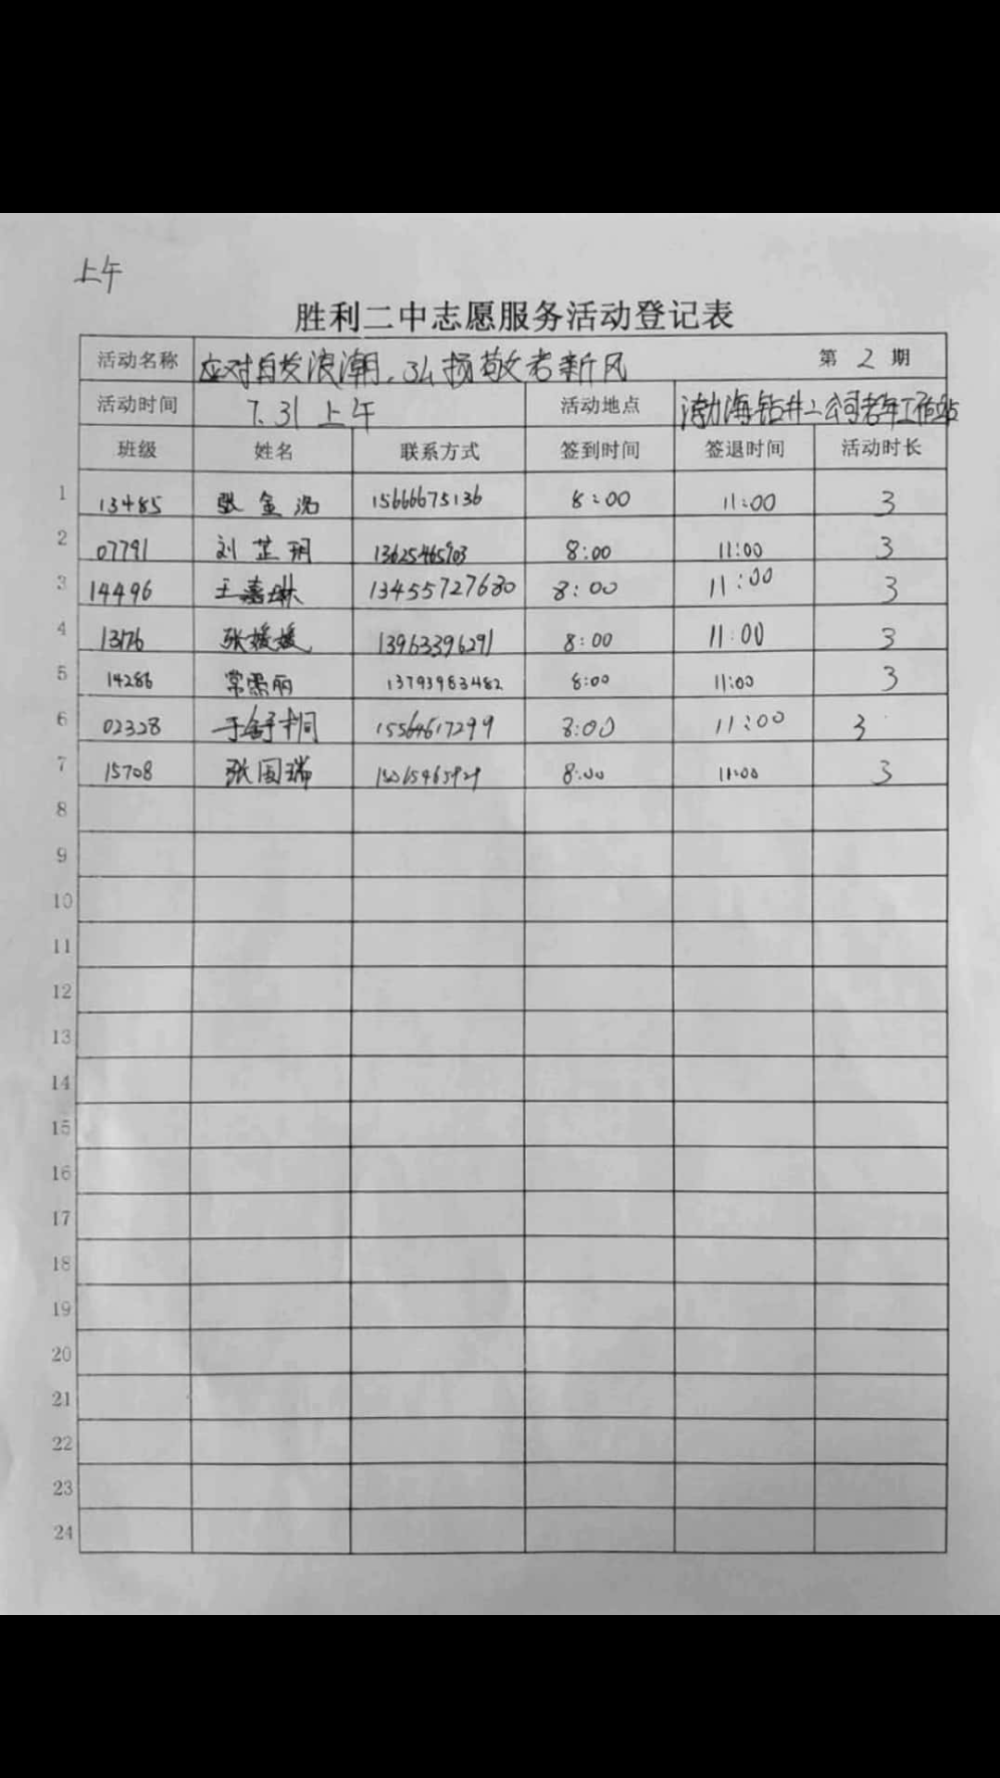 上午
胜利二中志愿服务活动登记表
活动名称 应对自发浪潮，弘扬敬老新风 第 2 期
活动时间 7.31 上午 活动地点 渤海钻井二公司老年工作站
班级 姓名 联系方式 签到时间 签退时间 活动时长
1 13485 张金 15666675136 8:00 11:00 3
2 07791 刘芷玥 13625465703 8:00 11:00 3
3 14496 王嘉琳 13455727680 8:00 11:00 3
4 13176 张媛媛 13963396291 8:00 11:00 3
5 14286 常 丽 13793983482 8:00 11:00 3
6 02328 于舒桐 15564617299 8:00 11:00 3
7 15708 张国瑞 8:00 11:00 3
8
9
10
11
12
13
14
15
16
17
18
19
20
21
22
23
24